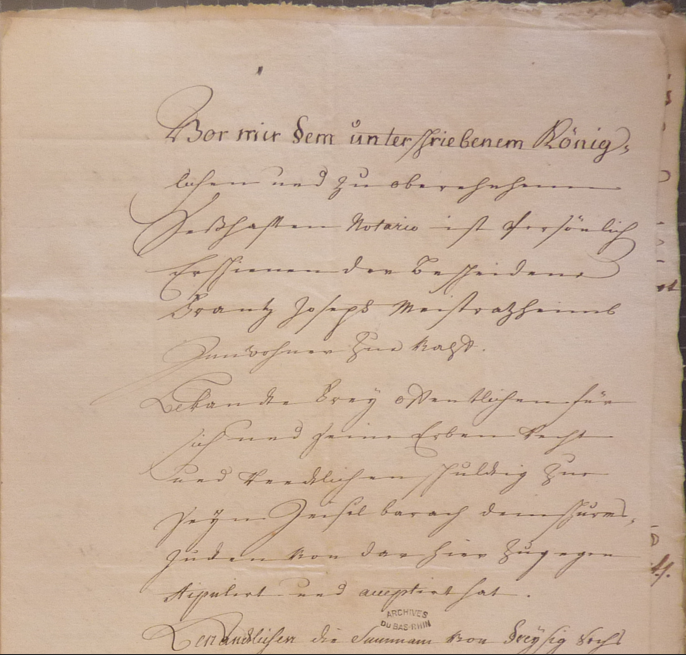 Vor mir dem unterschriebenem König-
lichen und zu oberehnheim
Seßhafften Notario ist persönlich
Erschienen der Bescheidene
Frantz Joseph Meistratzheim
Innwohner Zu
Bekandte Frey offentlichen für
sich und seine Erben Recht
und Redlichen schuldig Zu
Seyn barach dem
Juden von dar hier Zugegen
stipuliert und acceptiert hat.
ARCHIVES
DU BAS-RHIN
Benandtlichen die Summam von dreysig Sechs